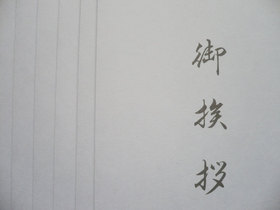 御挨拶